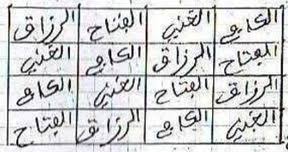 الكافي الغني الفتاح الرزاق
الفتاح الرزاق الكافي الغني
الرزاق الفتاح الغني الكافي
الغني الكافي الرزاق الفتاح